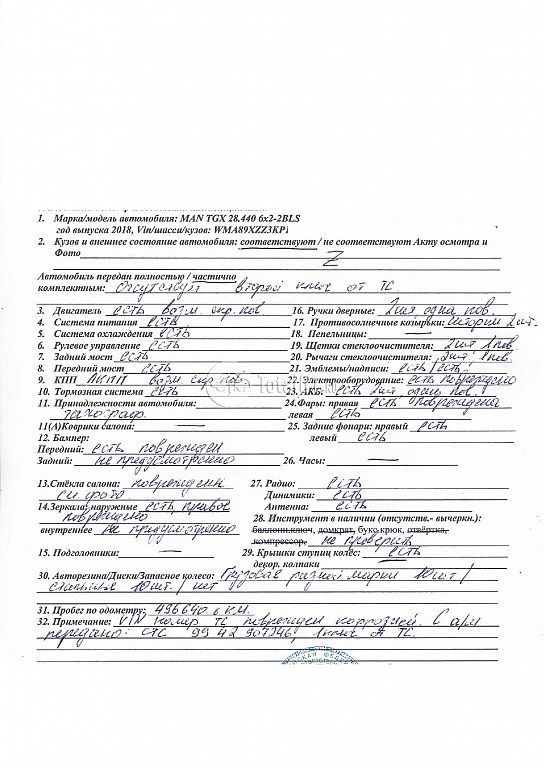 1. Марка/модель автомобиля: MAN TGX 28.440 6x2-2BLS
год выпуска 2018, Vin/шасси/кузов: WMA89XZZ3KP1
2. Кузов и внешнее состояние автомобиля: соответствуют / не соответствуют Акту осмотра и
Фото Z
Автомобиль передан полностью / частично
комплектным: Отсутствует второй ключ от ТС
3. Двигатель есть возм. скр. пов. 16. Ручки дверные: 2 шт, одна пов.
4. Система питания есть 17. Противосолнечные козырьки: шторки 2 шт.
5. Система охлаждения есть 18. Пепельницы: —
6. Рулевое управление есть 19. Щетки стеклоочистителя: 2 шт 1 пов.
7. Задний мост есть 20. Рычаги стеклоочистителя: 2 шт. 1 пов.
8. Передний мост есть 21. Эмблемы/надписи: есть / есть
9. КПП АКПП возм. скр. пов. 22. Электрооборудование: есть повреждено
10. Тормозная система есть 23. АКБ: есть 2 шт, одна пов.
11. Принадлежности автомобиля: 24. Фары: правая есть повреждена
тахограф. левая есть
11(А)Коврики салона: — 25. Задние фонари: правый есть
12. Бампер: левый есть
Передний: есть поврежден
Задний: не предусмотрено 26. Часы: —
13.Стёкла салона: поврежден 27. Радио: есть
см. фото. Динамики: есть
14.Зеркала: наружные есть, правое Антенна: есть
повреждено 28. Инструмент в наличии (отсутств.- вычеркн.):
внутреннее не предусмотрено баллонн.ключ, домкрат, букс.крюк, отвёртка,
компрессор, не проверить
15. Подголовники: — 29. Крышки ступиц колёс: есть
декор. колпаки —
30. Авторезина/Диски/Запасное колесо: Грузовая разной марки 10 шт /
стальные 10 шт. / нет
31. Пробег по одометру: 496640,6 км.
32. Примечание: VIN номер ТС поврежден коррозией. С а/м
передано: СТС 99 42 907246, 1 ключ от ТС.